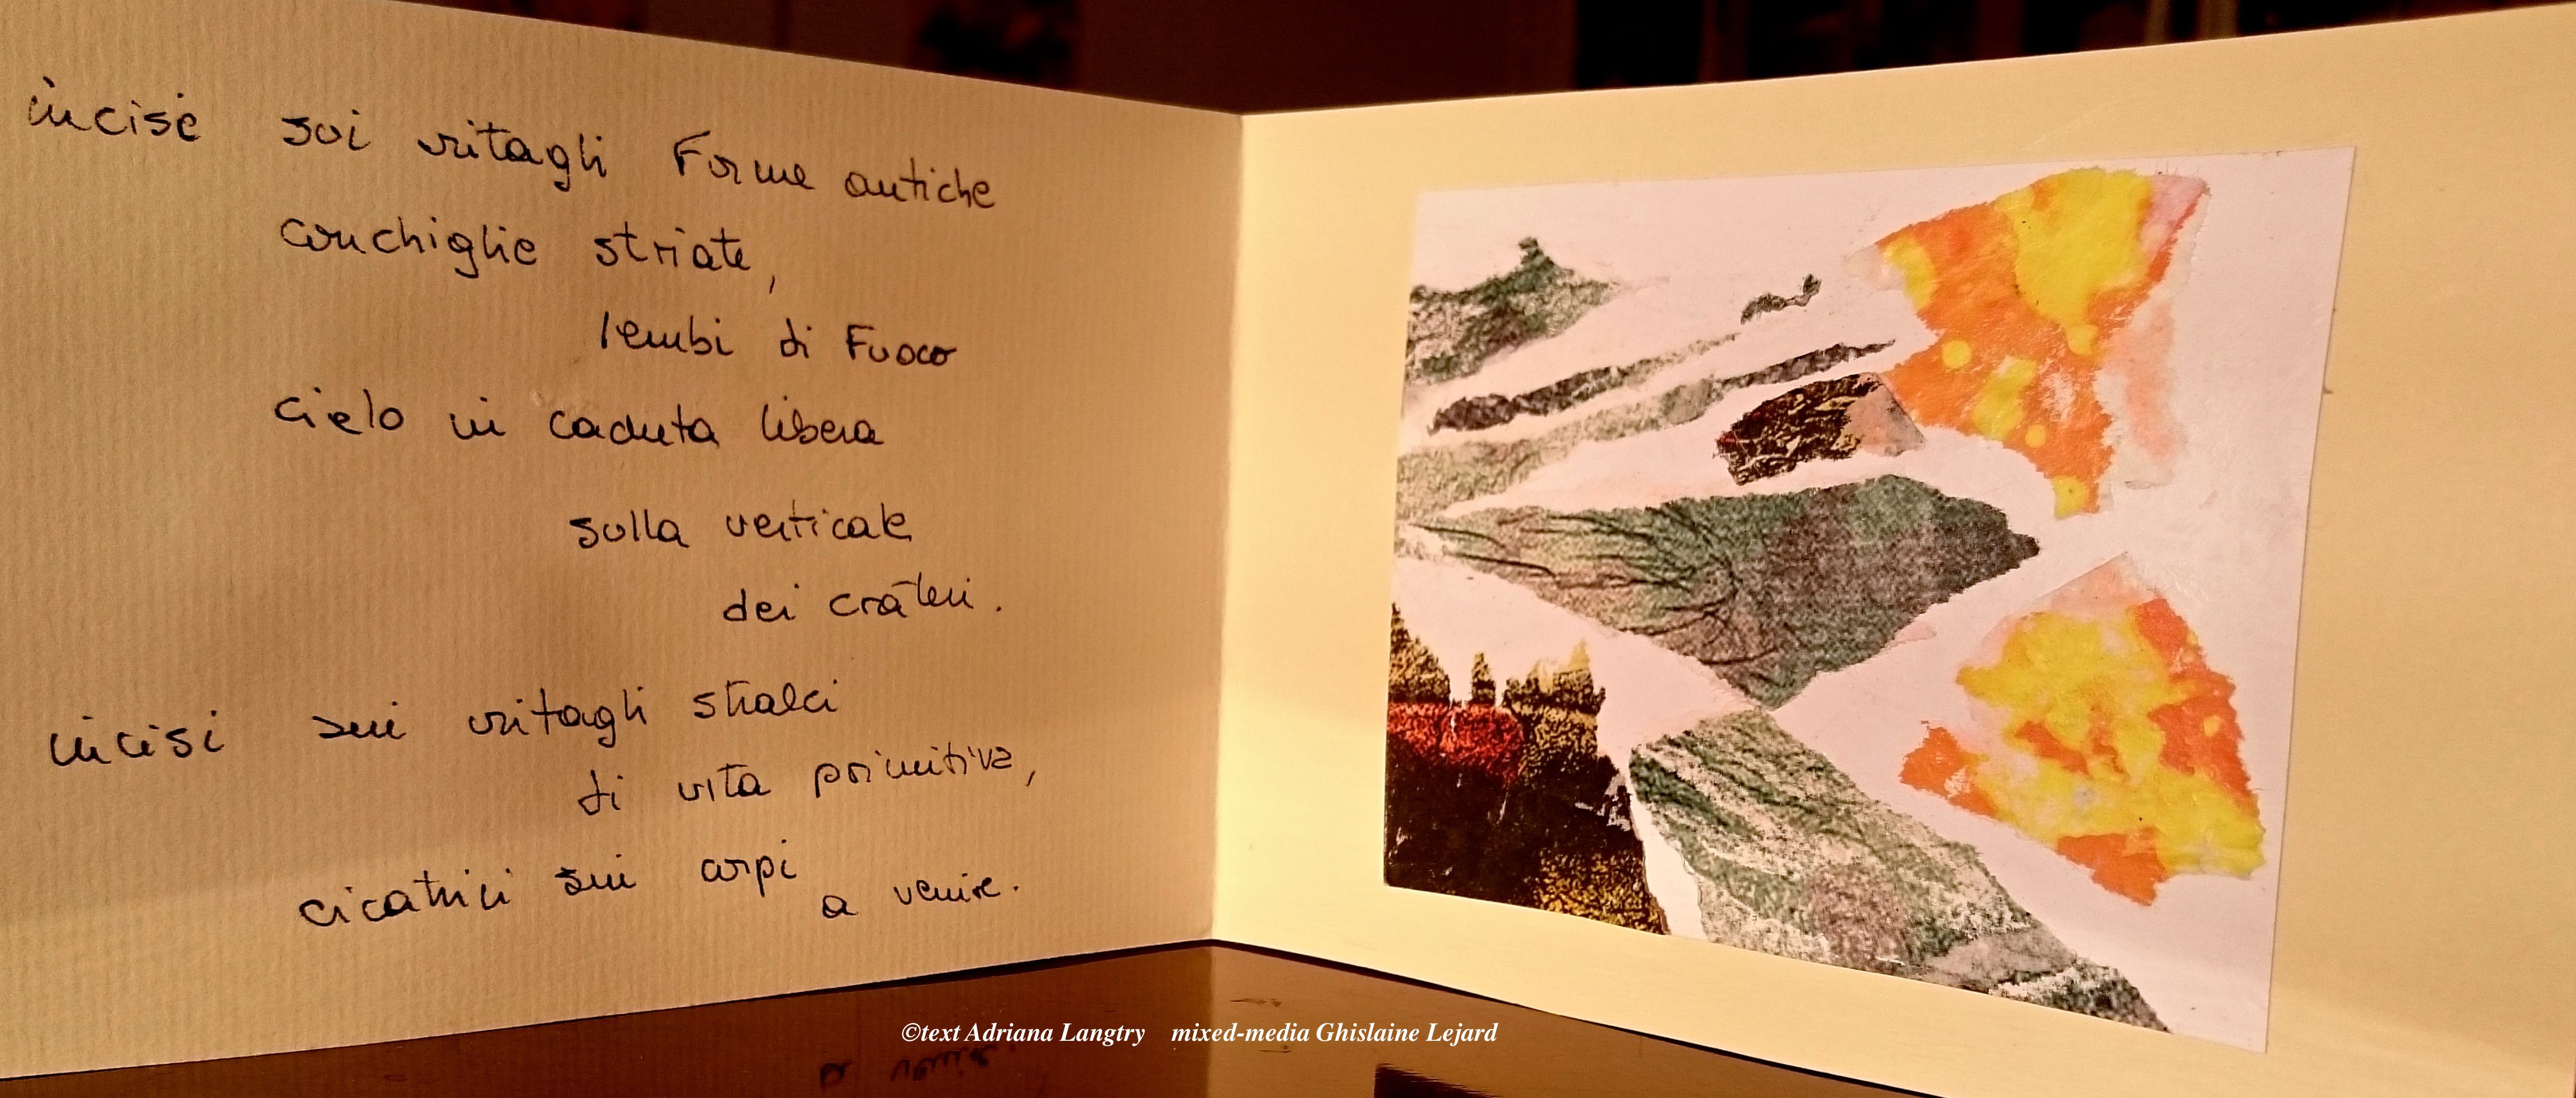 incise sui ritagli Forme antiche
conchiglie striate,
lembi di Fuoco
cielo in caduta libera
sulla verticale
dei crateri.
incisi sui ritagli stralci
di vita primitiva,
cicatrici sui corpi
a venire.
©text Adriana Langtry mixed-media Ghislaine Lejard